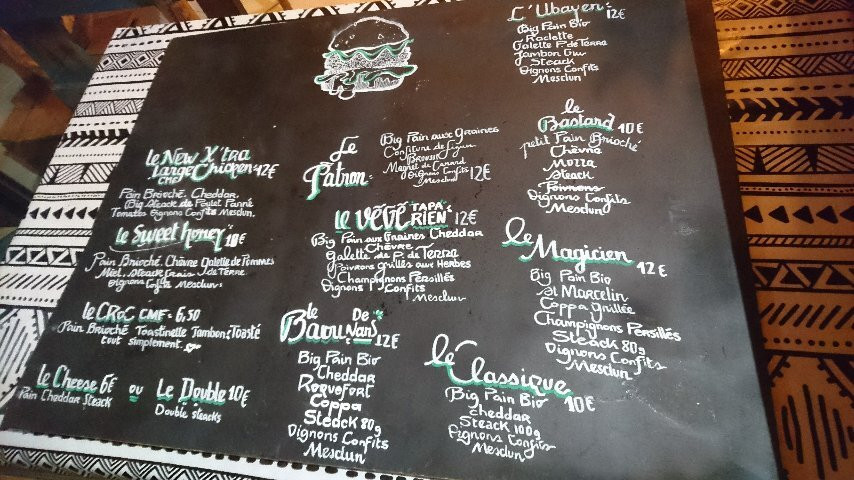 le New X'tra
Large Chicken 12€
CMF
Pain Brioché Cheddar
Big Steack de Poulet Panné
Tomates Oignons Confits Mesclun.
le Sweet honey 10€
Pain Brioché, Chèvre Galette de Pommes
Miel, Steack Frais de Terre
Oignons Confits Mesclun
le CROC CMF= 6,50
Pain Brioché Toastinelle Jambon; Toasté
tout simplement.
le Cheese 6€ ou Le Double 10€
Pain Cheddar Steack
Double steacks
Le
Patron= 12€
Big Pain aux Graines
Confiture de Figues
Brousse
Magret de Canard
Oignons Confits
Mesclun
le végé TAPA RIEN 12€
Big Pain aux Graines Cheddar
Chèvre
Galette de P. de Terra
Poivrons grillés aux Herbes
Champignons Persillés
Oignons Confits
Mesclun
le
Baou De Vans 12€
Big Pain Bio
Cheddar
Roquefort
Coppa
Steack 80g
Oignons Confits
Mesclun
L'Ubayen= 12€
Big Pain Bio
Raclette
Galette P. de Terra
Jambon Cru
Steack
Oignons Confits
Mesclun
le
Bastard 10€
petit Pain Brioché
Chèvre
Mozza
Steack
Poivrons
Oignons Confits
Mesclun
le Magicien 12€
Big Pain Bio
St Marcelin
Coppa Grillée
Champignons Persillés
Steack 80g
Oignons Confits
Mesclun
le Classique 10€
Big Pain Bio
Cheddar
Steack 100g
Oignons Confits
Mesclun